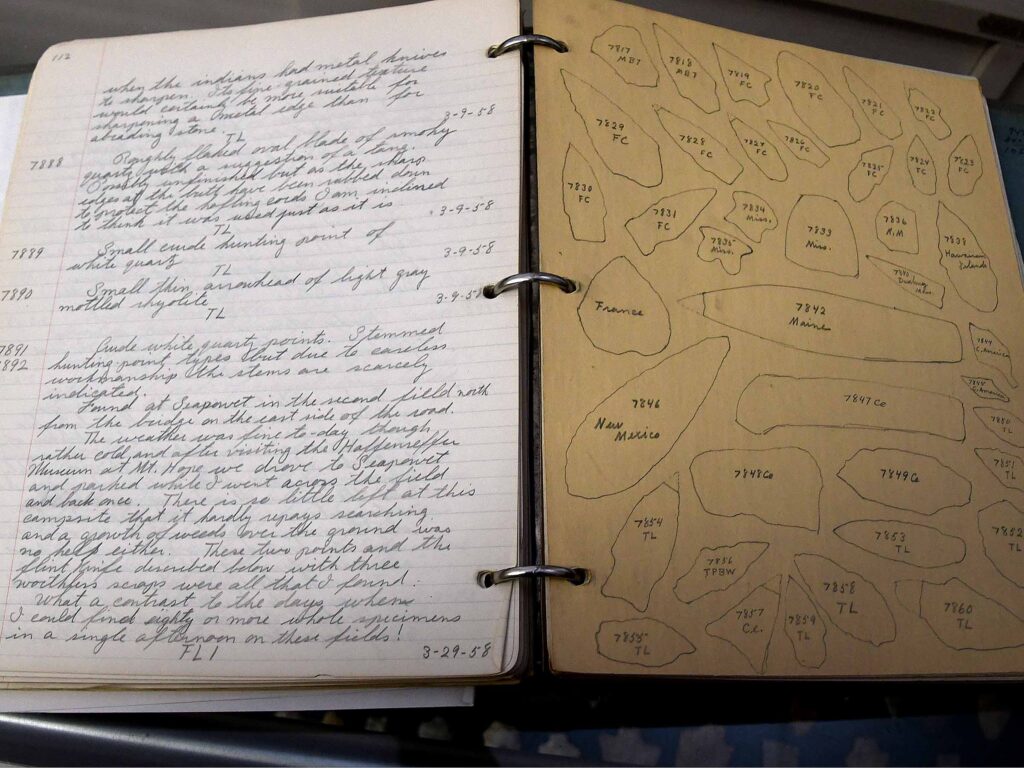 112
when the indians had metal knives
to sharpen. Its fine grained texture
would certainly be more suitable for
sharpening a metal edge than for
abrading stone.
TL 3-9-58
7888 Roughly flaked oval blade of smoky
quartz with a suggestion of a tang.
Possibly unfinished but as the sharp
edges at the butt have been rubbed down
to protect the hafting cords I am inclined
to think it was used just as it is.
TL 3-9-58
7889 Small crude hunting point of
white quartz
TL 3-9-58
7890 Small thin arrowhead of light gray
mottled rhyolite
TL 3-9-58
7891 Crude white quartz points. Stemmed
7892 hunting point types but due to careless
workmanship the stems are scarcely
indicated.
Found at Seapowet in the second field north
from the bridge on the east side of the road.
The weather was fine to-day though
rather cold and after visiting the Haffenreffer
Museum at Mt. Hope we drove to Seapowet
and parked while I went across the field
and back once. There is so little left at this
campsite that it hardly repays searching
and a growth of weeds over the ground was
no help either. These two points and the
flint knife described below with three
worthless scraps were all that I found.
What a contrast to the days when
I could find eighty or more whole specimens
in a single afternoon on these fields!
FL1 3-29-58
7817
MBT
7818
MBT
7819
FC
7820
FC
7821
FC
7822
FC
7829
FC
7828
FC
7827
FC
7826
FC
7825
FC
7824
FC
7823
FC
7830
FC
7831
FC
7834
Miss.
7835
Miss.
7833
Miss.
7836
N.M
7838
Hawaiian
Islands
7840
France
7842
Maine
7844
C. America
7845
C. America
7846
New
Mexico
7847 Co
7848 Co
7849 Co
7850
TL
7851
TL
7852
TL
7853
TL
7854
TL
7855
TL
7856
TPBW
7857
Ce.
7858
TL
7859
TL
7860
TL